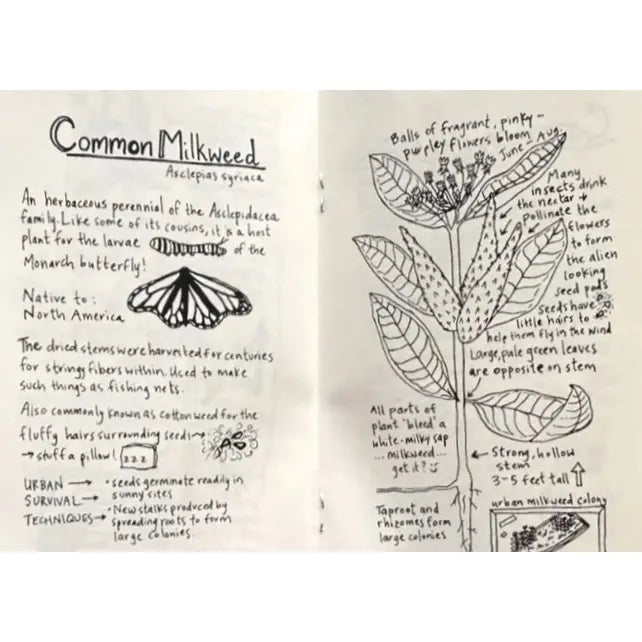 Common Milkweed
Asclepias syriaca
An herbaceous perennial of the Asclepidacea
family. Like some of its cousins, it is a host
plant for the larvae of the
Monarch butterfly!
Native to:
North America
The dried stems were harvested for centuries
for stringy fibers within. Used to make
such things as fishing nets.
Also commonly known as cottonweed for the
fluffy hairs surrounding seeds→
→ stuff a pillow! zzz
URBAN → • seeds germinate readily in
SURVIVAL → sunny sites
TECHNIQUES → • New stalks produced by
spreading roots to form
large colonies.
Balls of fragrant, pinky-
purpley flowers bloom
June - Aug.
Many
insects drink
the nectar +
pollinate the
flowers
to form
the alien
looking
seed pods
seeds have
little hairs to
help them fly in the wind
Large, pale green leaves
are opposite on stem
All parts of
plant 'bleed' a
white-milky sap
... milkweed ...
get it?
← Strong, hollow
stem
3-5 feet tall
Taproot and
rhizomes form
large colonies
urban milkweed colony